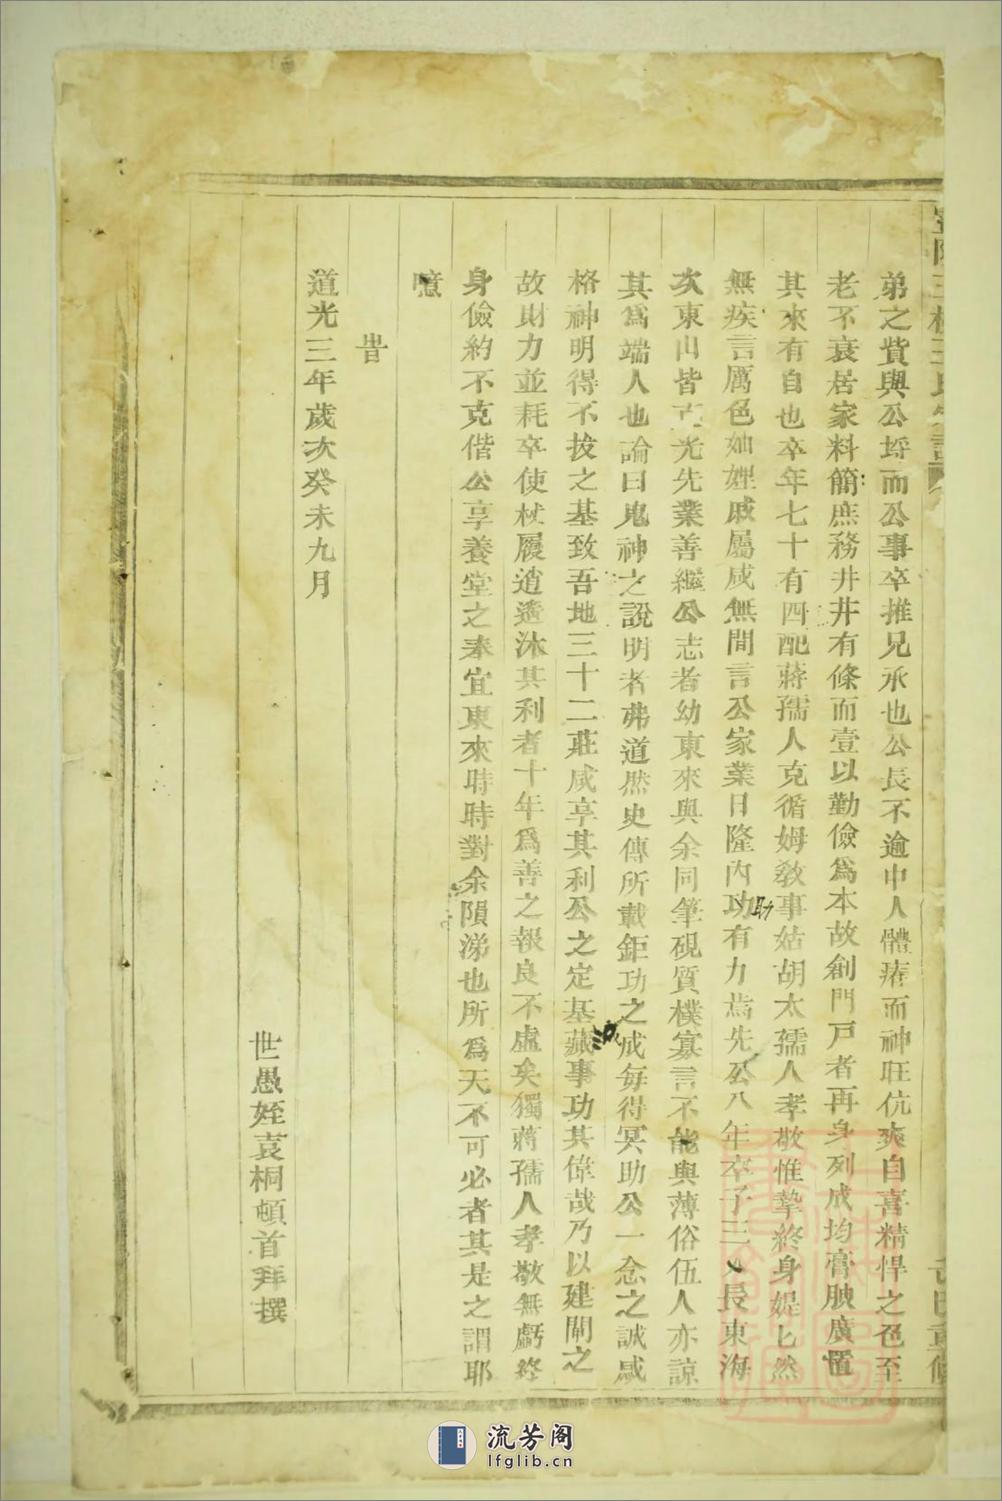 弟之貲與公埒而公事卒推兄承也公長不逾中人體瘠而神旺伉爽自喜精悍之色至
老不衰居家料簡庶務井井有條而壹以勤儉爲本故創門戸者再身列成均膏腴廣置
其來有自也卒年七十有四配蔣孺人克循姆敎事姑胡太孺人孝敬惟摯終身媞匕然
無疾言厲色妯娌戚屬咸無間言公家業日隆內助有力焉先公八年卒子三人長東海
次東山皆克光先業善繼公志者幼東來與余同筆硯質樸寡言不能與薄俗伍人亦諒
其爲端人也論曰鬼神之說明者弗道然史傳所載鉅功之成每得冥助公一念之誠感
格神明得不拔之基致吾地三十二莊咸享其利公之定基蕆事功其偉哉乃以建閘之
故財力並耗卒使杖履逍遙沐其利者十年爲善之報良不虛矣獨蔣孺人孝敬無虧終
身儉約不克偕公享養堂之奉宜東來時時對余隕涕也所爲天不可必者其是之謂耶
噫
旹
道光三年歲次癸未九月
世愚姪袁桐頓首拜撰
流芳阁
lfglib.cn